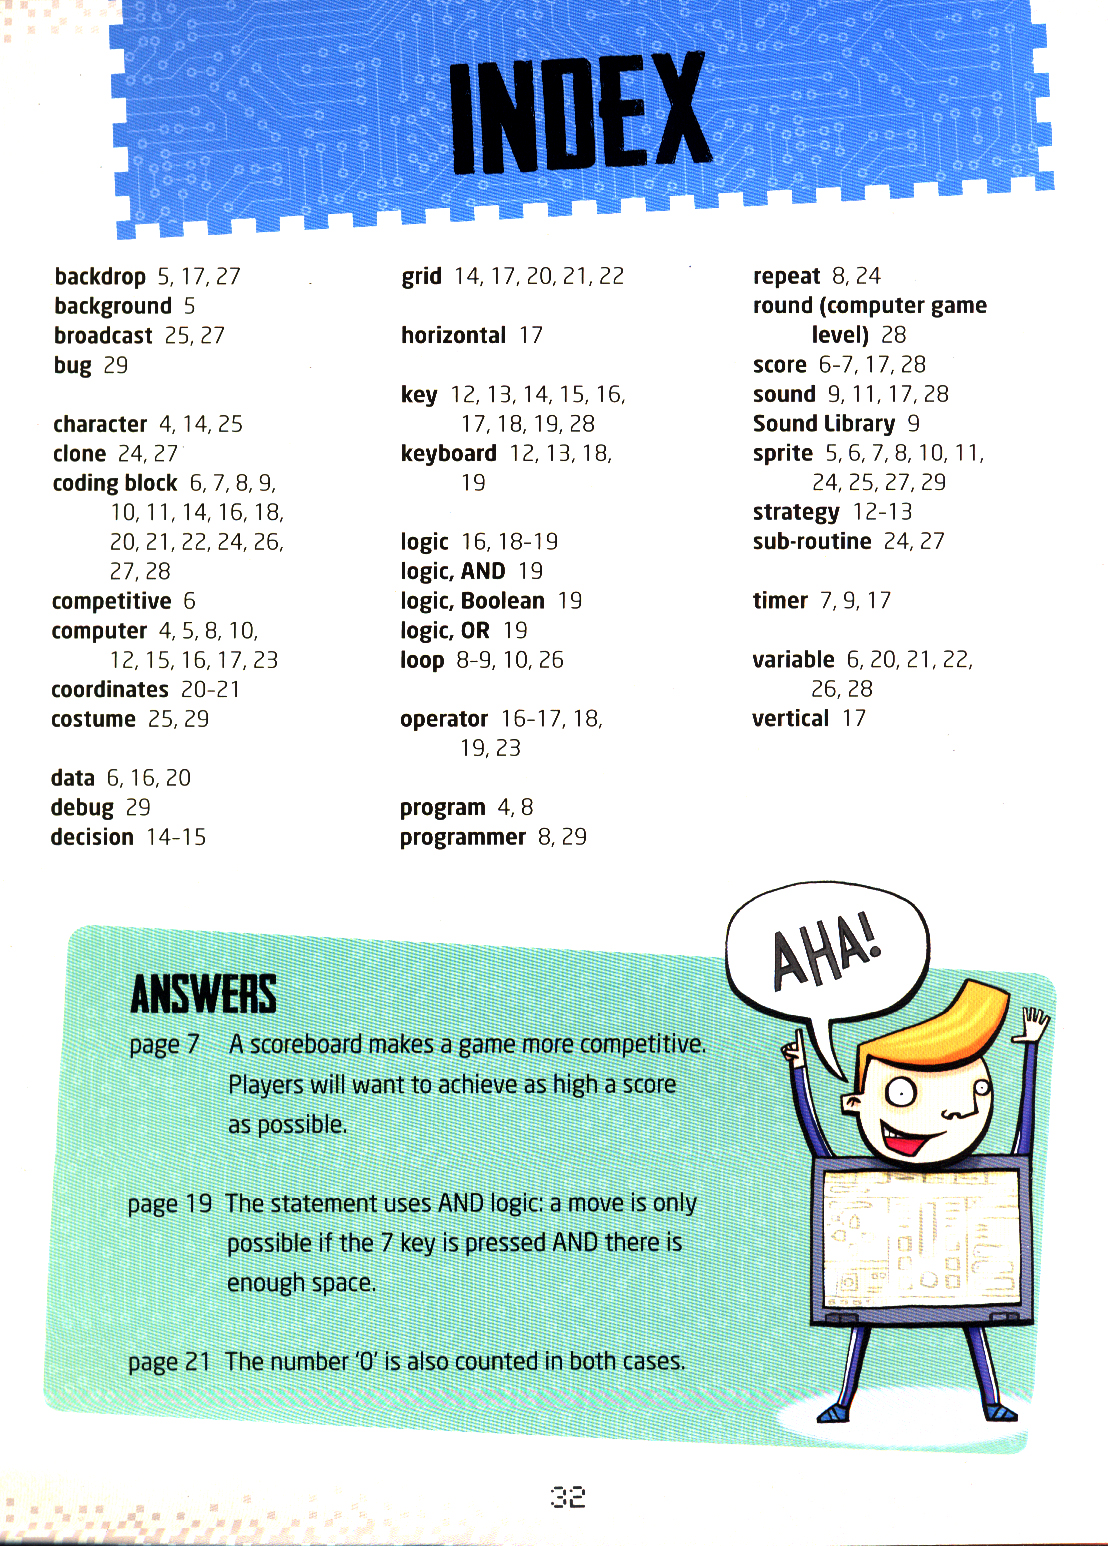 INDEX
backdrop 5, 17, 27
background 5
broadcast 25, 27
bug 29
character 4, 14, 25
clone 24, 27
coding block 6, 7, 8, 9,
10, 11, 14, 16, 18,
20, 21, 22, 24, 26,
27, 28
competitive 6
computer 4, 5, 8, 10,
12, 15, 16, 17, 23
coordinates 20-21
costume 25, 29
data 6, 16, 20
debug 29
decision 14-15
grid 14, 17, 20, 21, 22
horizontal 17
key 12, 13, 14, 15, 16,
17, 18, 19, 28
keyboard 12, 13, 18,
19
logic 16, 18-19
logic, AND 19
logic, Boolean 19
logic, OR 19
loop 8-9, 10, 26
operator 16-17, 18,
19, 23
program 4, 8
programmer 8, 29
repeat 8, 24
round (computer game
level) 28
score 6-7, 17, 28
sound 9, 11, 17, 28
Sound Library 9
sprite 5, 6, 7, 8, 10, 11,
24, 25, 27, 29
strategy 12-13
sub-routine 24, 27
timer 7, 9, 17
variable 6, 20, 21, 22,
26, 28
vertical 17
AHA!
ANSWERS
page 7 A scoreboard makes a game more competitive.
Players will want to achieve as high a score
as possible.
page 19 The statement uses AND logic: a move is only
possible if the 7 key is pressed AND there is
enough space.
page 21 The number '0' is also counted in both cases.
32